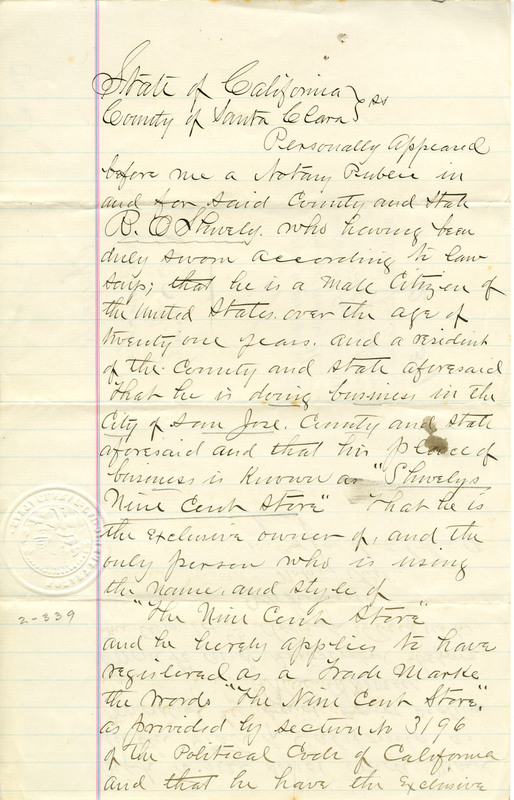 State of California } ss
County of Santa Clara
Personally Appeared
before me a Notary Public in
and for said County and State
B. E Shively. who having been
duly sworn according to law
says; that he is a male Citizen of
the United States. over the age of
twenty one years. and a resident
of the County and State aforesaid
that he is doing business in the
City of San Jose. County and State
aforesaid and that his place of
business is Known as "Shivelys
Nine Cent Store" that he is
the exclusive owner of, and the
only person who is using
the name. and style of
"The Nine Cent Store"
and he hereby applies to have
registered as a Trade Marke
the words "the Nine Cent Store".
as provided by section to 3196
of the Political Code of California
and that he have the Exclusive
2-339